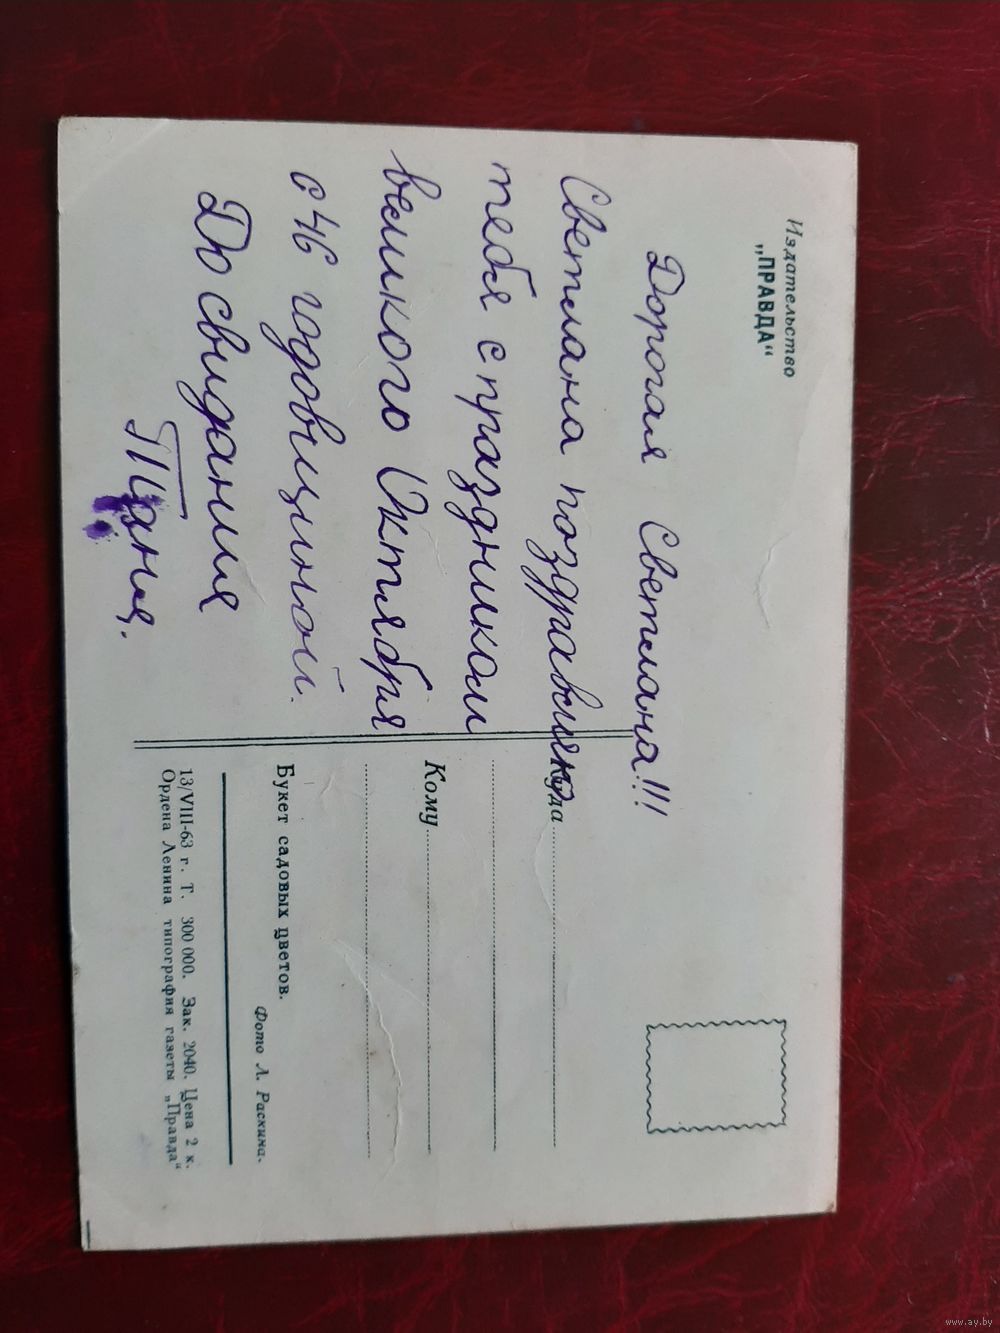 Издательство
„ПРАВДА“
Дорогая Светлана!!!
Светлана поздравляю
тебя с праздником
великого Октября
с 46 годовщиной.
До свидания
Таня.
Куда
Кому
Букет садовых цветов.
Фото Л. Раскина.
13/VIII-63 г. Т. 300 000. Зак. 2040. Цена 2 к.
Ордена Ленина типография газеты „Правда“
www.ay.by